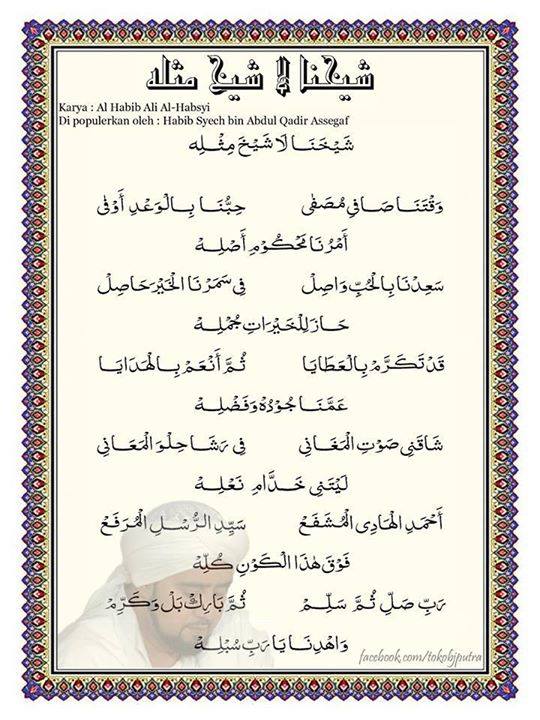 شيخنا لا شيخ مثله
Karya : Al Habib Ali Al-Habsyi
Di populerkan oleh : Habib Syech bin Abdul Qadir Assegaf
شَيْخَنَا لَا شَيْخَ مِثْلِه
وَقْتَنَا صَافِي مُصَفَّى حِبُّنَا بِالْوَعْدِ أَوْفَى
أَمْرُنَا مَحْكُوْمِ أَصْلِهْ
سَعِدْنَا بِالْحُبِّ وَاصِلْ فِي سَمَرْنَا الْخَيْرَ حَاصِلْ
حَازَ لِلْخَيْرَاتِ جُمْلِهْ
قَدْ تَكَرَّمْ بِالْعَطَايَا ثُمَّ أَنْعَمْ بِالْهَدَايَا
عَمَّنَا جُوْدُهْ وَفَضْلِهْ
شَاقَنِي صَوْتِ الْمَغَانِي فِي رَشَا حِلْوِ الْمَعَانِي
لَيْتَنِي خَدَّامِ نَعْلِهْ
أَحْمَدِ الْهَادِي الْمُشَفَّعْ سَيِّدِ الرُّسْلِ الْمُرَفَّعْ
فَوْقَ هٰذَا الْكَوْنِ كُلِّهْ
رَبِّ صَلِّ ثُمَّ سَلِّمْ ثُمَّ بَارِكْ بَلْ وَكَرِّمْ
وَاهْدِنَا يَا رَبِّ سُبْلِهْ
facebook.com/tokobjputra